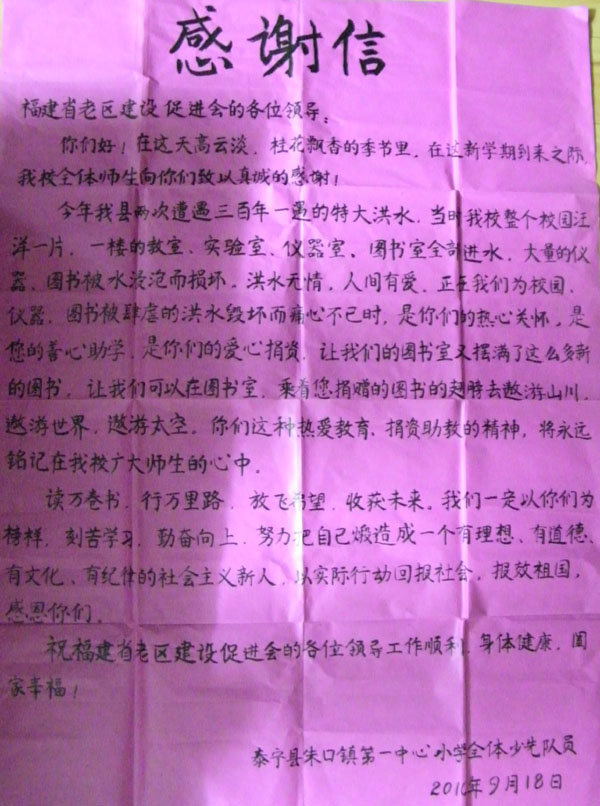 感谢信
福建省老区建设促进会的各位领导:
你们好!在这天高云淡,桂花飘香的季节里,在这新学期到来之际,
我校全体师生向你们致以真诚的感谢!
今年我县两次遭遇三百年一遇的特大洪水,当时我校整个校园汪
洋一片,一楼的教室、实验室、仪器室、图书室全部进水,大量的仪
器、图书被水浸泡而损坏。洪水无情,人间有爱,正在我们为校园、
仪器、图书被肆虐的洪水毁坏而痛心不已时,是你们的热心关怀,是
您的善心助学,是你们的爱心捐资,让我们的图书室又摆满了这么多新
的图书,让我们可以在图书室,乘着您捐赠的图书的翅膀去遨游山川,
遨游世界,遨游太空。你们这种热爱教育、捐资助教的精神,将永远
铭记在我校广大师生的心中。
读万卷书,行万里路,放飞希望,收获未来。我们一定以你们为
榜样,刻苦学习,勤奋向上,努力把自己煅造成一个有理想、有道德、
有文化、有纪律的社会主义新人,以实际行动回报社会,报效祖国,
感恩你们。
祝福建省老区建设促进会的各位领导工作顺利,身体健康,阖
家幸福!
泰宁县朱口镇第一中心小学全体少先队员
2010年9月18日